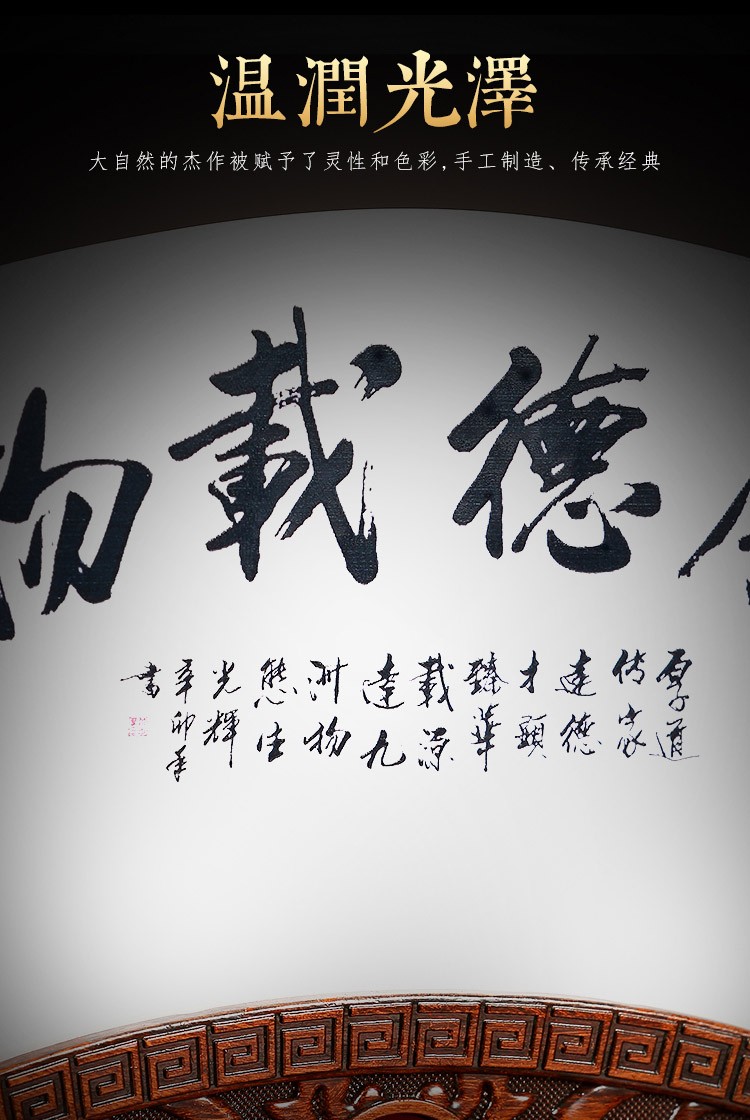 温潤光澤
大自然的杰作被赋予了灵性和色彩,手工制造、传承经典
德載物
厚道
传家
達德
才顯
臻華
載源
達九
洲物
態生
光輝
辛卯年
書